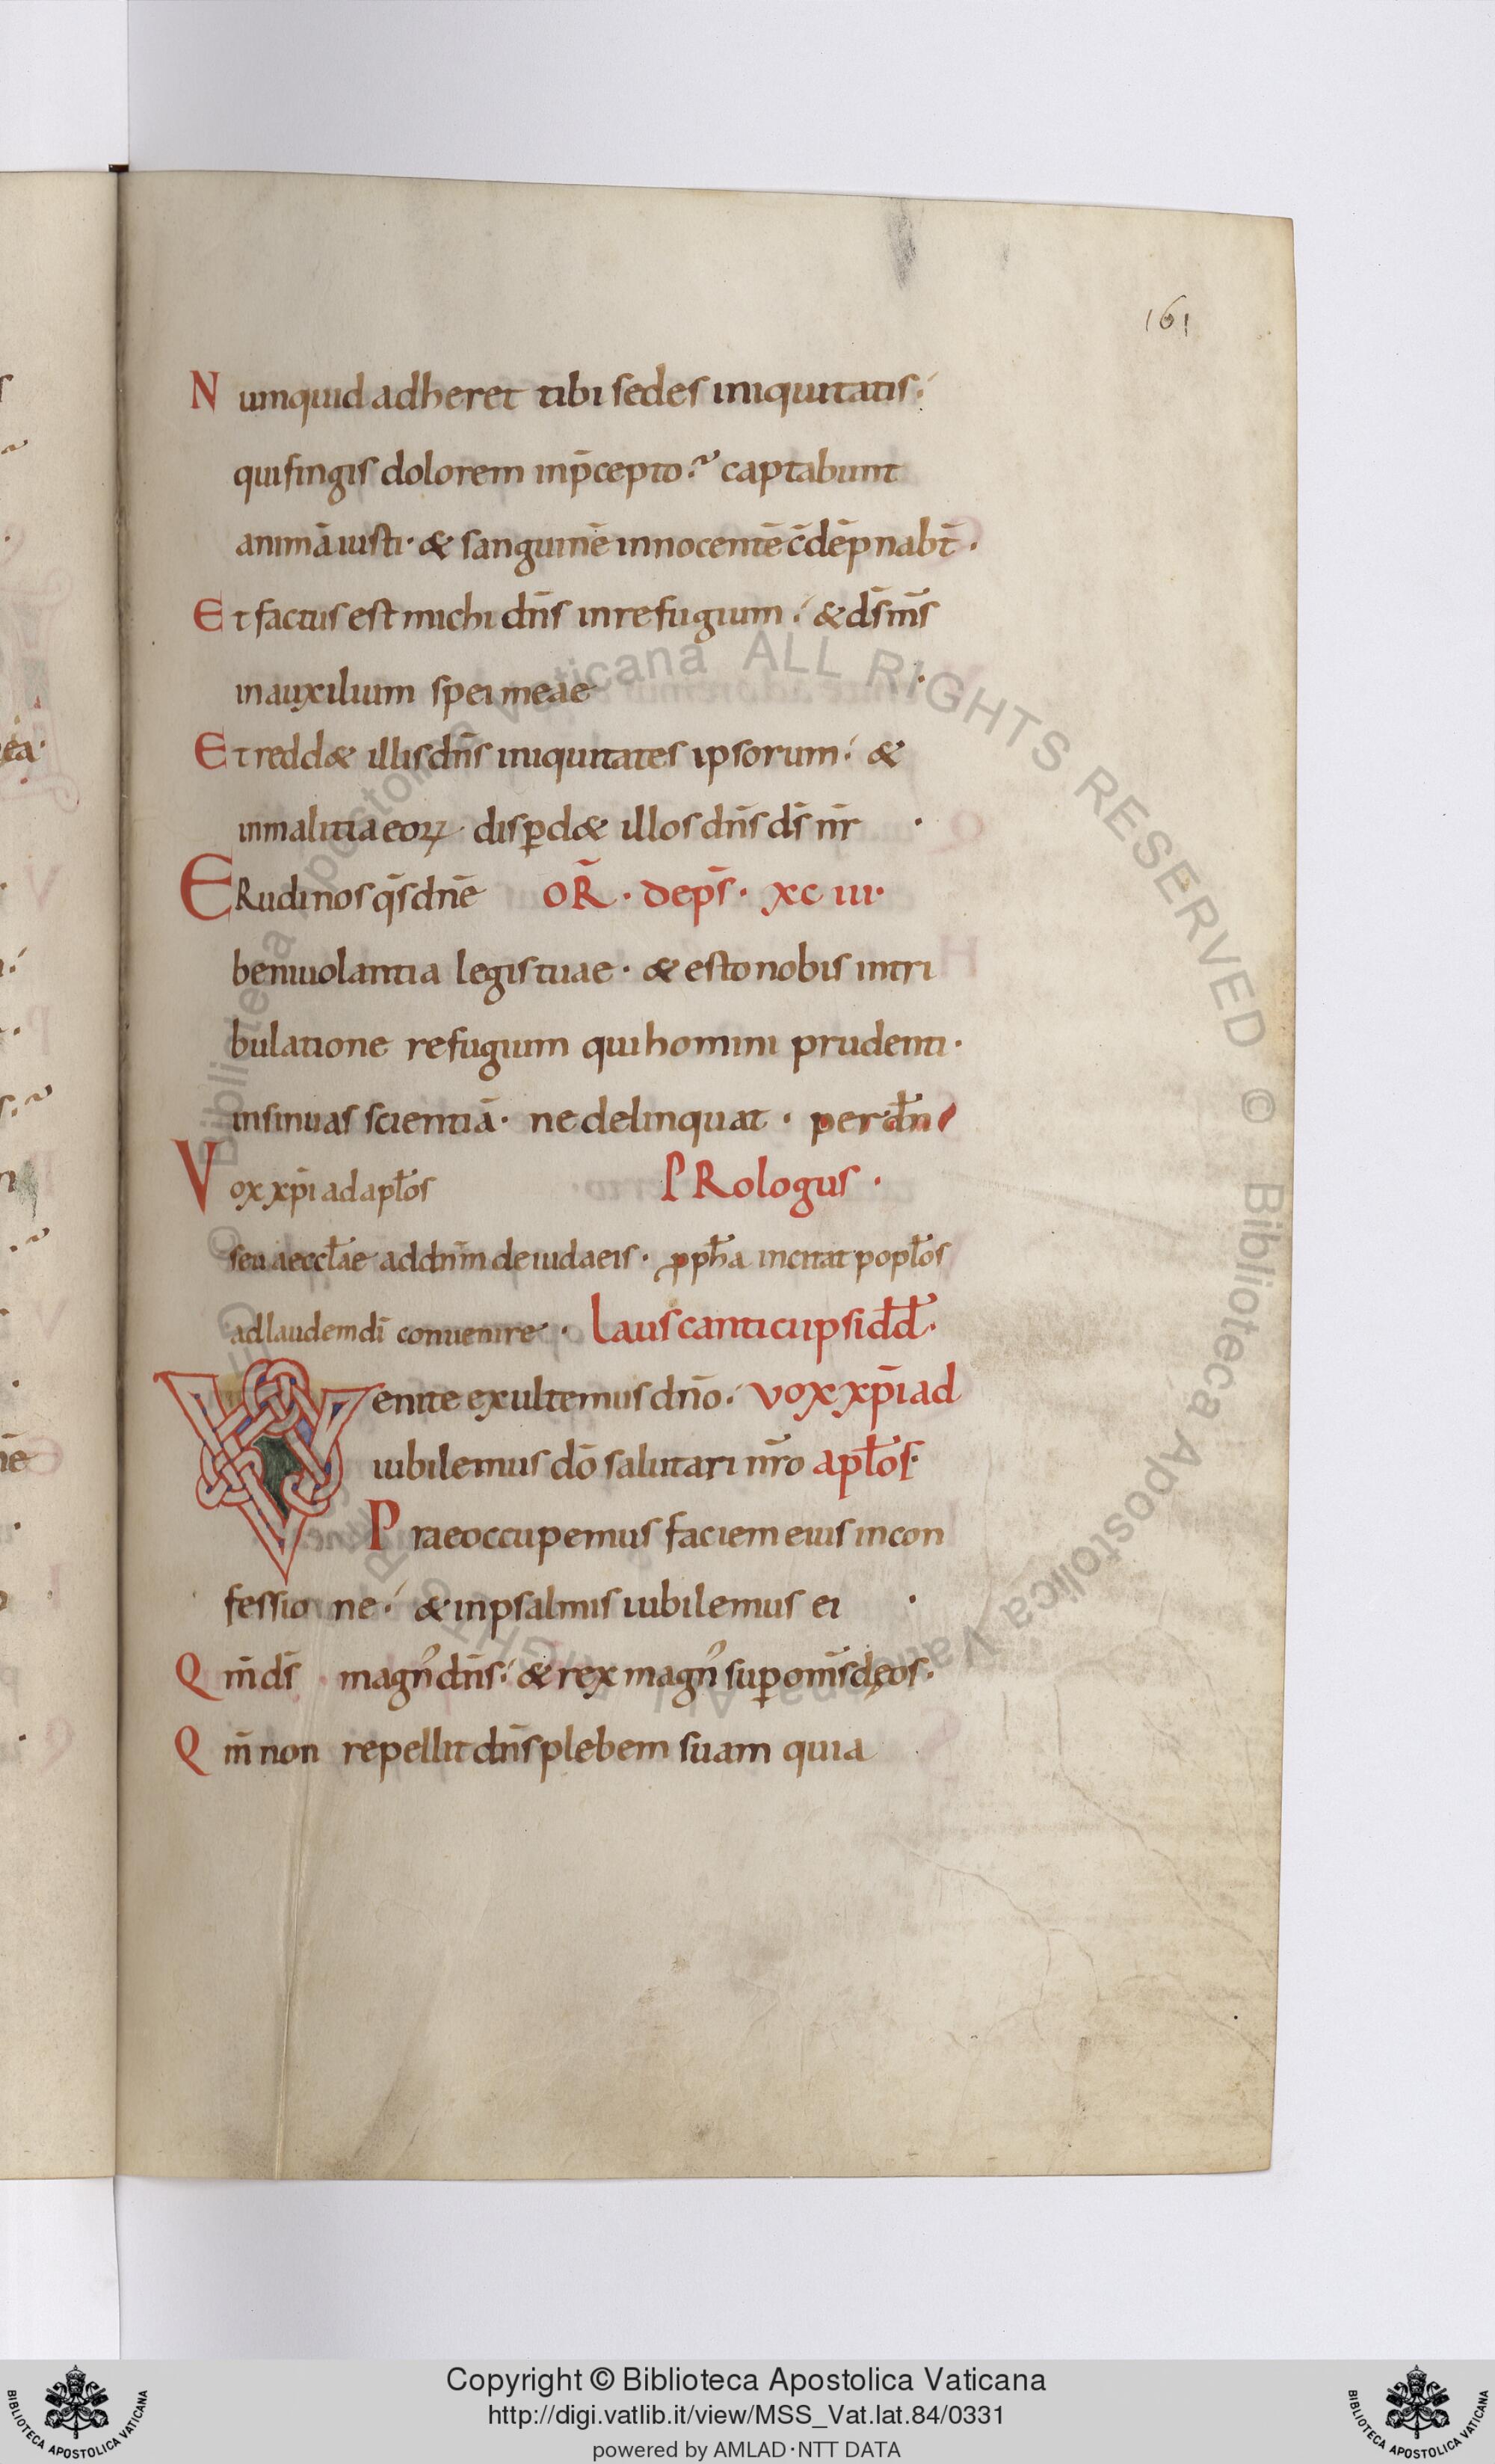 161
Numquid adheret tibi sedes iniquitatis
qui fingis dolorem inp̄cepto captabunt
animā iusti · & sanguinē innocentē c̄dēpnabt̄ ·
Et factus est michi dn̄s in refugium & ds̄ ms̄
in auxilium spei meae ·
Et redd& illis dn̄s iniquitates ipsorum &
in malitia eoꝝ · disꝑd& illos dn̄s ds̄ nr̄ ·
ERudi nos qs̄ dnē OR̄ · de ps̄ · xc iii ·
beniuolantia legis tuae · & esto nobis in tri
bulatione refugium qui homini prudenti ·
insinuas scientiā · ne delinquat · per dn̄
Vox xp̄i ad aptos PRologus ·
seu aecctae ad dnm̄ de iudaeis · ꝓpha incitat poptos
ad laudem di conuenire · Laus cantici ipsi dd ·
Venite exultemus dn̄o vox xp̄i ad
iubilemus dō salutari nr̄o aptos ·
Praeoccupemus faciem eius in con
fessione & in psalmis iubilemus ei ·
Qm̄ ds̄ magn' dn̄s & rex magn' suꝑ om̄s dęos ·
Qm̄ non repellit dn̄s plebem suam quia
© Biblioteca Apostolica Vaticana ALL RIGHTS RESERVED
Copyright © Biblioteca Apostolica Vaticana
http://digi.vatlib.it/view/MSS_Vat.lat.84/0331
powered by AMLAD·NTT DATA
BIBLIOTECA APOSTOLICA VATICANA
BIBLIOTECA APOSTOLICA VATICANA